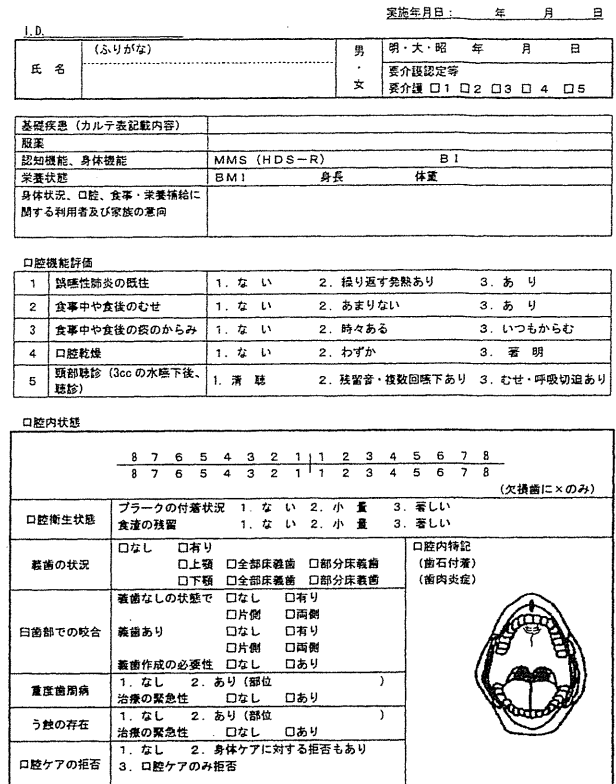 実施年月日: 年 月 日
I.D.
(ふりがな)
氏 名
男・女
明・大・昭 年 月 日
要介護認定等
要介護 □1 □2 □3 □ 4 □5
基礎疾患（カルテ表記載内容）
服薬
認知機能、身体機能 MMS (HDS－R) BI
栄養状態 BMI 身長 体重
身体状況、口腔、食事・栄養補給に
関する利用者及び家族の意向
口腔機能評価
1 誤嚥性肺炎の既往 1. な い 2. 繰り返す発熱あり 3. あ り
2 食事中や食後のむせ 1. な い 2. あまりない 3. あ り
3 食事中や食後の痰のからみ 1. な い 2. 時々ある 3. いつもからむ
4 口腔乾燥 1. な い 2. わずか 3. 著 明
5 頸部聴診（3ccの水嚥下後、
聴診） 1. 清 聴 2. 残留音・複数回嚥下あり 3. むせ・呼吸切迫あり
口腔内状態
8 7 6 5 4 3 2 1 1 2 3 4 5 6 7 8
8 7 6 5 4 3 2 1 1 2 3 4 5 6 7 8
(欠損歯に×のみ)
口腔衛生状態
プラークの付着状況 1. な い 2. 小 量 3. 著しい
食渣の残留 1. な い 2. 小 量 3. 著しい
義歯の状況
□なし □有り
□上顎 □全部床義歯 □部分床義歯
□下顎 □全部床義歯 □部分床義歯
口腔内特記
(歯石付着)
(歯肉炎症)
臼歯部での咬合
義歯なしの状態で □なし □有り
□片側 □両側
義歯あり □なし □有り
□片側 □両側
義歯作成の必要性 □なし □あり
重度歯周病
1. なし 2. あり（部位 ）
治療の緊急性 □なし □あり
う蝕の存在
1. なし 2. あり（部位 ）
治療の緊急性 □なし □あり
口腔ケアの拒否
1. なし 2. 身体ケアに対する拒否もあり
3. 口腔ケアのみ拒否